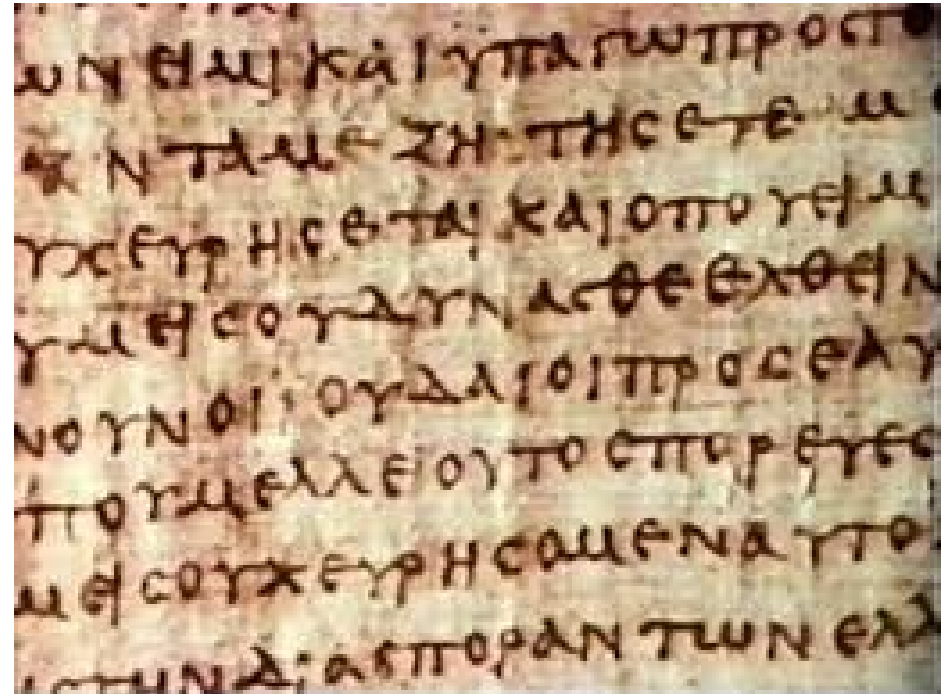 ωΝΕΙΜΙΚΑΙΫΠΑΓωΠΡΟCΤΟ
ΝΤΑΜΕΖΗΤΗCΕΤΕΜ
ΥΧΕΥΡΗCΕΤΑΙΚΑΙΟΠΟΥΕΙΜ
ΥΜΕΙCΟΥΔΥΝΑCΘΕΕΛΘΕΙΝ
ΝΟΥΝΟΙΙΟΥΔΑΙΟΙΠΡΟCΕΑΥ
ΠΟΥΜΕΛΛΕΙΟΥΤΟCΠΟΡΕΥΕC
ΜΕΙCΟΥΧΕΥΡΗCΟΜΕΝΑΥΤΟ
ΙCΤΗΝΔΙΑCΠΟΡΑΝΤωΝΕΛΛ